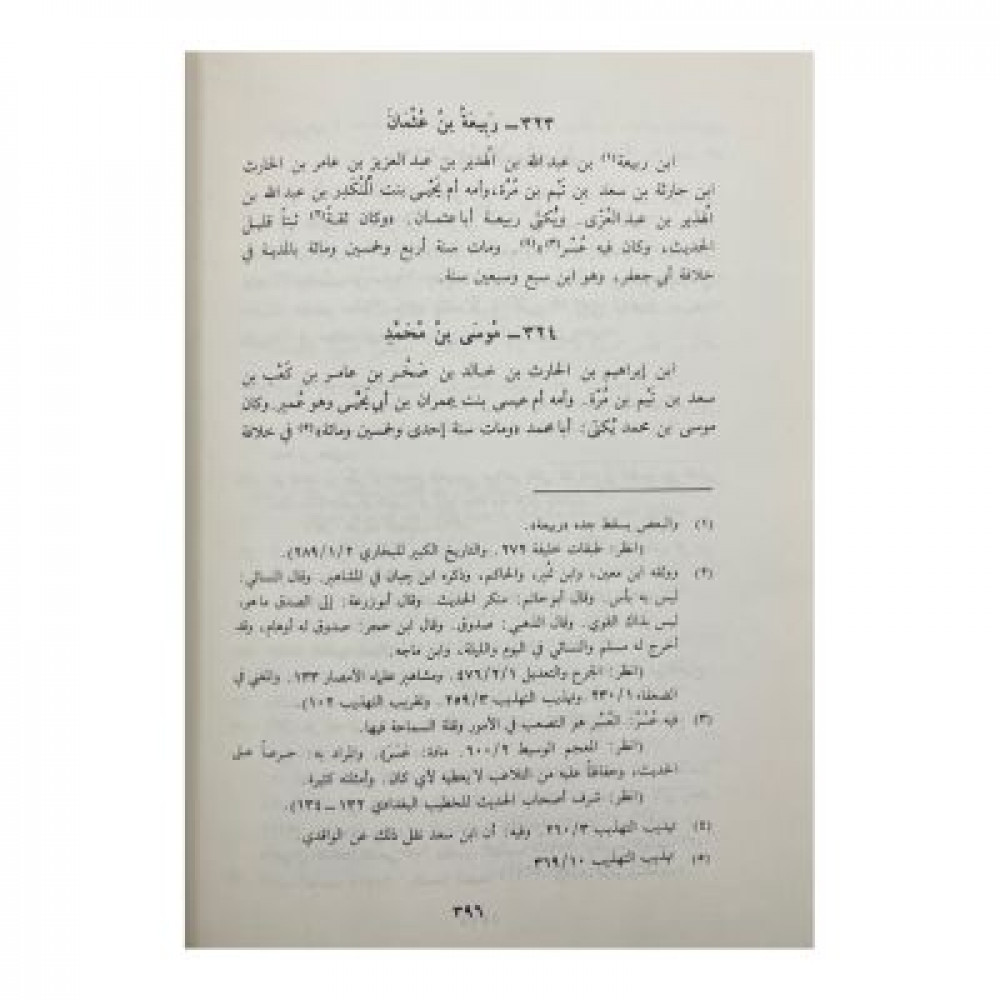 ٣٢٣ـ رَبِيعَةُ بنُ عُثْمَانَ
ابن ربيعة(١) بن عبد الله بن الهدير بن عبد العزيز بن عامر بن الحارث
ابن حارثة بن سعد بن تَيْم بن مُرَّة، وأمه أم يَحْيَى بنت الُمنْكَدِر بن عبد الله بن
الهدير بن عبد العُزَّى. ويُكنَى ربيعة أبا عثمان. «وكان ثقةً(٢) ثبتاً قليل
الحديث، وكان فيه عُسْر(٣)»(٤). ومات سنة أربع وخمسين ومائة بالمدينة في
خلافة أبي جعفر، وهو ابن سبع وسبعين سنة.
٣٢٤ـ مُوسَى بنُ مُحَمَّدِ
ابن إبراهيم بن الحارث بن خالد بن صَخْر بن عامر بن كَعْب بن
سعد بن تَيْم بن مُرَّة. وأمه أم عيسى بنت عِمران بن أبي يَحْيَى وهو عُمير. وكان
موسى بن محمد يُكنَى: أبا محمد «ومات سنة إحدى وخمسين ومائة»(٥) في خلافة
(١) والبعض يسقط جده «ربيعة».
(انظر: طبقات خليفة ٢٧٢. والتاريخ الكبير للبخاري ٢٨٩/١/٢).
(٢) ووثقه ابن معين، وابن نُمير، والحاكم، وذكره ابن حبان في المشاهير. وقال النسائي:
ليس به بأس. وقال أبو حاتم: منكر الحديث. وقال أبو زرعة: إلى الصدق ما هو،
ليس بذاك القوي. وقال الذهبي: صدوق. وقال ابن حجر: صدوق له أوهام، وقد
أخرج له مسلم والنسائي في اليوم والليلة، وابن ماجه.
(انظر: الجرح والتعديل ٤٧٦/٢/١. ومشاهير علماء الأمصار ١٣٣. والمغني في
الضعفاء ٢٣٠/١. وتهذيب التهذيب ٢٥٩/٣. وتقريب التهذيب ١٠٢).
(٣) فيه عُسْرٌ: العُسْر هو التصعب في الأمور وقلة السماحة فيها.
(انظر: المعجم الوسيط ٦٠٠/٢. مادة: عَسَرَ). والمراد به: حرصاً على
الحديث، وحفاظاً عليه من التلاعب لا يعطيه لأي كان. وأمثلته كثيرة.
(انظر: شرف أصحاب الحديث للخطيب البغدادي ١٣٢ ـ ١٣٤).
(٤) تهذيب التهذيب ٢٦٠/٣. وفيه: أن ابن سعد نقل ذلك عن الواقدي
(٥) تهذيب التهذيب ٣٦٩/١٠.
٣٩٦